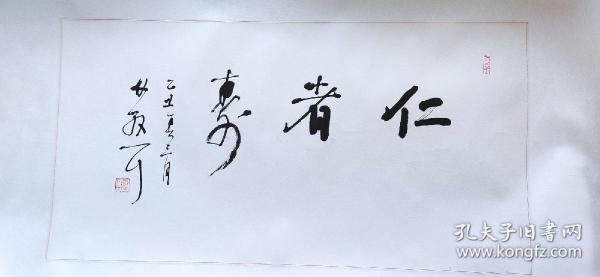 仁者寿
乙丑夏三月
孔夫子旧书网
www.kongfz.com